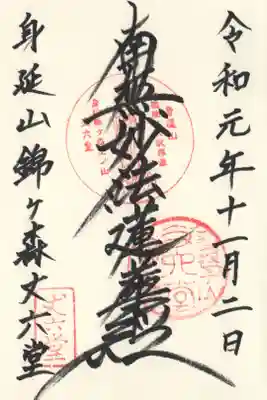 令和元年十一月二日
南無妙法蓮華経
身延山錦ヶ森丈六堂
丈六堂